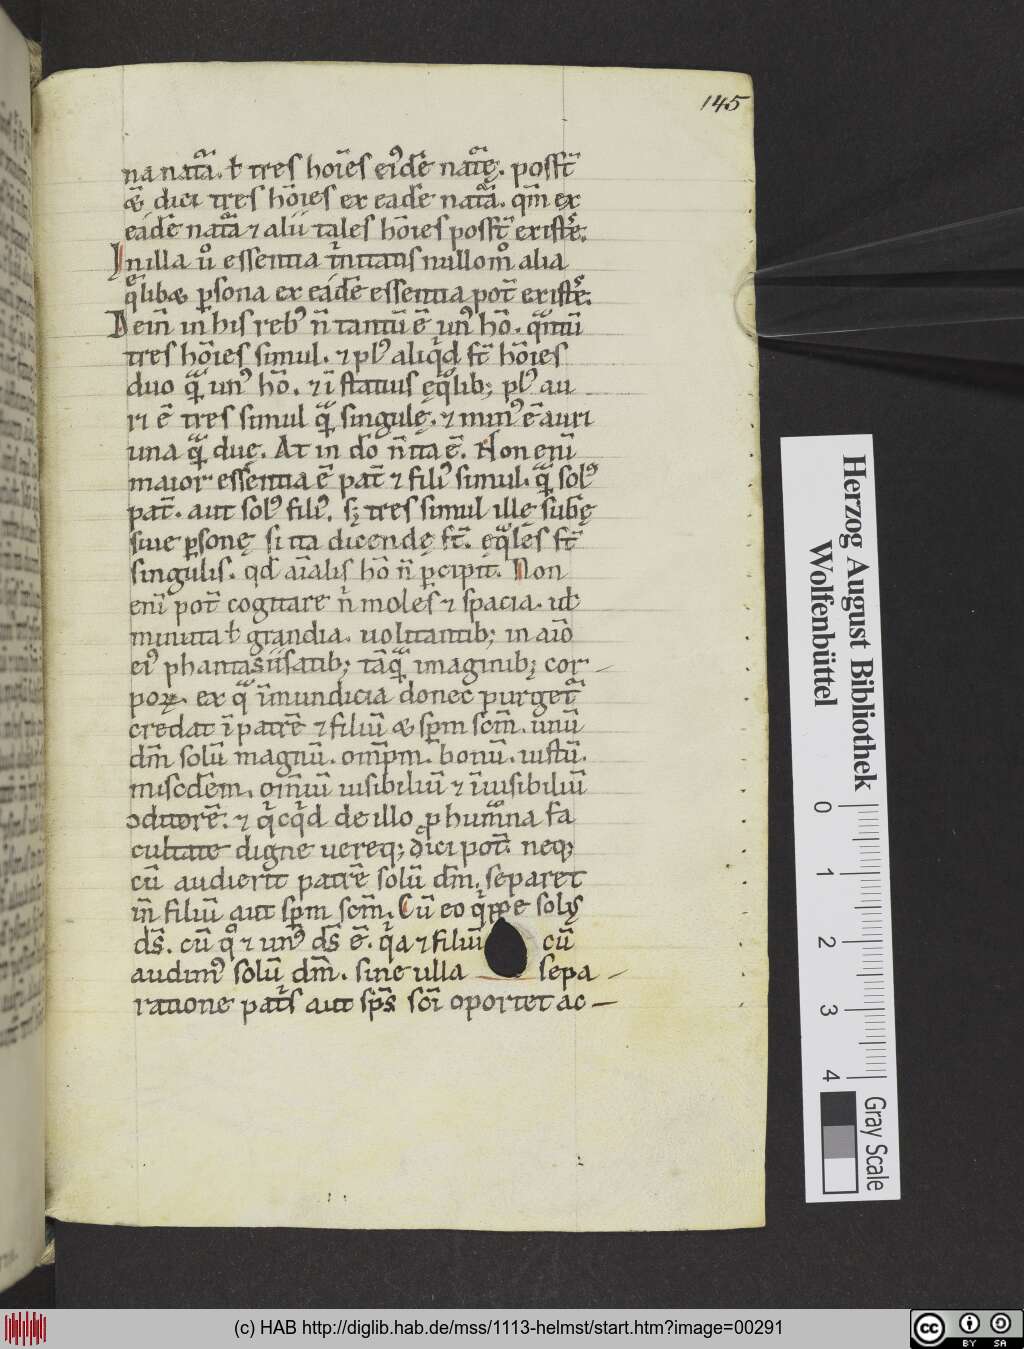 145
na nat̄a. ł tres hoı̄es eiꝰdē nat̄ę. posst̄
& dici tres hōies ex eadē nat̄a. qm̄ ex
eadē nat̄a ⁊ alii tales hōies posst̄ existē.
In illa ů essentia tⁱnitatis nulloꝰ alia
qͥlib& ꝑsona ex eadē essentia pot̄ existē.
Dein̄ in his rebꝰ n̄ tantū ē unꝰ hō. qᷓntū
tres hōies simul. ⁊ plꝰ aliqͥd st̄ hōies
duo qᷓ unꝰ hō. ⁊ ī statuis ęqͣlib; plꝰ au
ri ē tres simul qᷓ singulę. ⁊ minꝰ ē auri
una qᷓ duę. At in dō n̄ ita ē. Non eni̅
maior essentia ē pat̄ ⁊ filiꝰ simul. qᷓ solꝰ
pat̄. aut solꝰ filiꝰ. s; tres simul illę subę
siue ꝑsonę si ita dicendę st̄. ęqͣles st̄
singulis. qd̄ aīalis hō n̄ ꝑcipit. Non
eni̅ pot̄ cogitare n̄ moles ⁊ spacia. ul̄
minuta ł grandia. uolitantib; in aīo
eiꝰ phantasiisatib; tāqᷓ imaginib; cor
poꝝ. ex qͣ īmundicia donec purget̄
credat ī patrē ⁊ filiū & spm̄ scm̄. unū
dm̄ solū magnū. omp̄m. bonū. iustū.
misc̄dem. omīuı̅ uisibiliū ⁊ īuisibiliū
ↄditorē. ⁊ qͥcqͥd de illo ꝓ humana fa
cultate digne uereq; dici pot̄. neq;
cū audierit patrē solū dm̄. separet
in̄ filiū aut spm̄ scm̄. Cū eo qͥppe solꝰ
ds̄. cū qͦ ⁊ unꝰ ds̄ ē. qͥa ⁊ filiū cū
audimꝰ solū dm̄. sine ulla sepa
ratione pat̄s aut sps̄ sci̅ oportet ac
Herzog August Bibliothek
Wolfenbüttel
0 1 2 3 4
Gray Scale
(c) HAB http://diglib.hab.de/mss/1113-helmst/start.htm?image=00291
cc BY SA